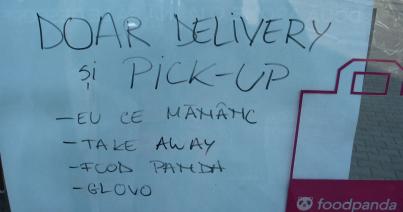 DOAR DELIVERY
și PICK-UP
- EU CE MĂNÂNC
- TAKE AWAY
- FOOD PANDA
- GLOVO
foodpanda